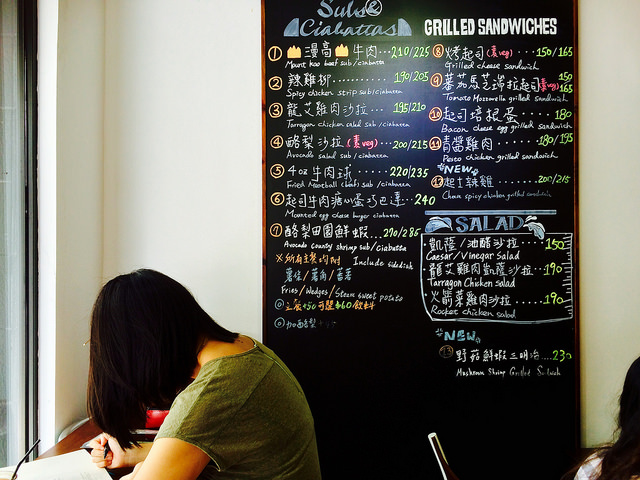 Subs &
Ciabattas
① 漫高 牛肉...210/225
Mount kao beef sub/ciabatta
② 辣雞柳..........190/205
Spicy chicken strip sub/ciabatta
③ 龍艾雞肉沙拉...195/210
Tarragon chicken salad sub/ciabatta
④ 酪梨沙拉(素veg)...200/215
Avocado salad sub/ciabatta
⑤ 4oz牛肉球 220/235
Fried Meatball (beef) sub/ciabatta
⑥ 起司牛肉 蛋巧巴達...240
egg cheese burger ciabatta
⑦ 酪梨田園鮮蝦...270/285
Avocado country shrimp sub/ciabatta
※所有主餐均附 Include sidedish
薯條/薯角/蕃薯
Fries/Wedges/Steam sweet potato
GRILLED SANDWICHES
⑧ 烤起司(素veg)....150/165
Grilled cheese sandwich
⑨ 蕃茄馬芝瑞拉起司素veg 150/165
Tomato Mozzarella grilled sandwich
⑩ 起司培根蛋......180
Bacon cheese egg grilled sandwich
⑪ 青醬雞肉......180/195
Pesto chicken grilled sandwich
*NEW*
⑫ 起士辣雞.....200/215
Chees spicy chicken grilled sandwich
SALAD
凱薩/油醋沙拉...150
Caesar/Vinegar Salad
龍艾雞肉凱薩沙拉..190
Tarragon Chicken Salad
火箭菜雞肉沙拉....190
Rocket chicken salad
*NEW*
⑬ 野菇鮮蝦三明治....230
Mushroom Shrimp Grilled